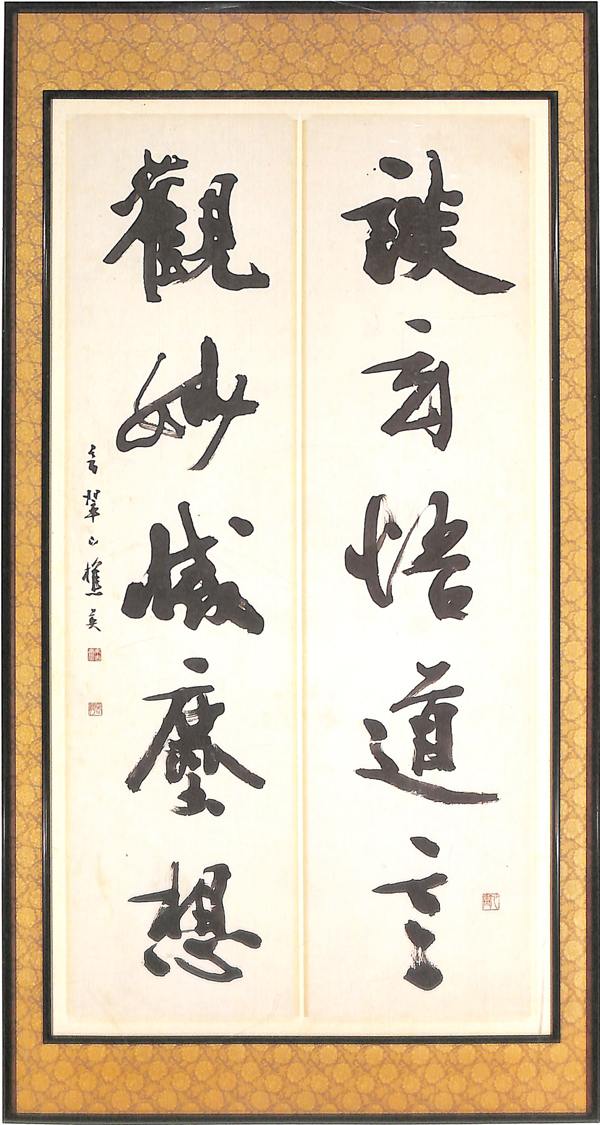 談玄悟道言
觀妙滅塵想
翠山樵